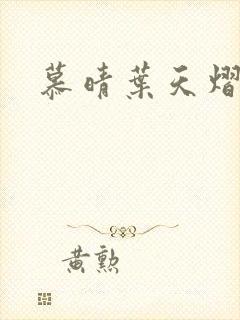 慕晴葉天熠
黃勲